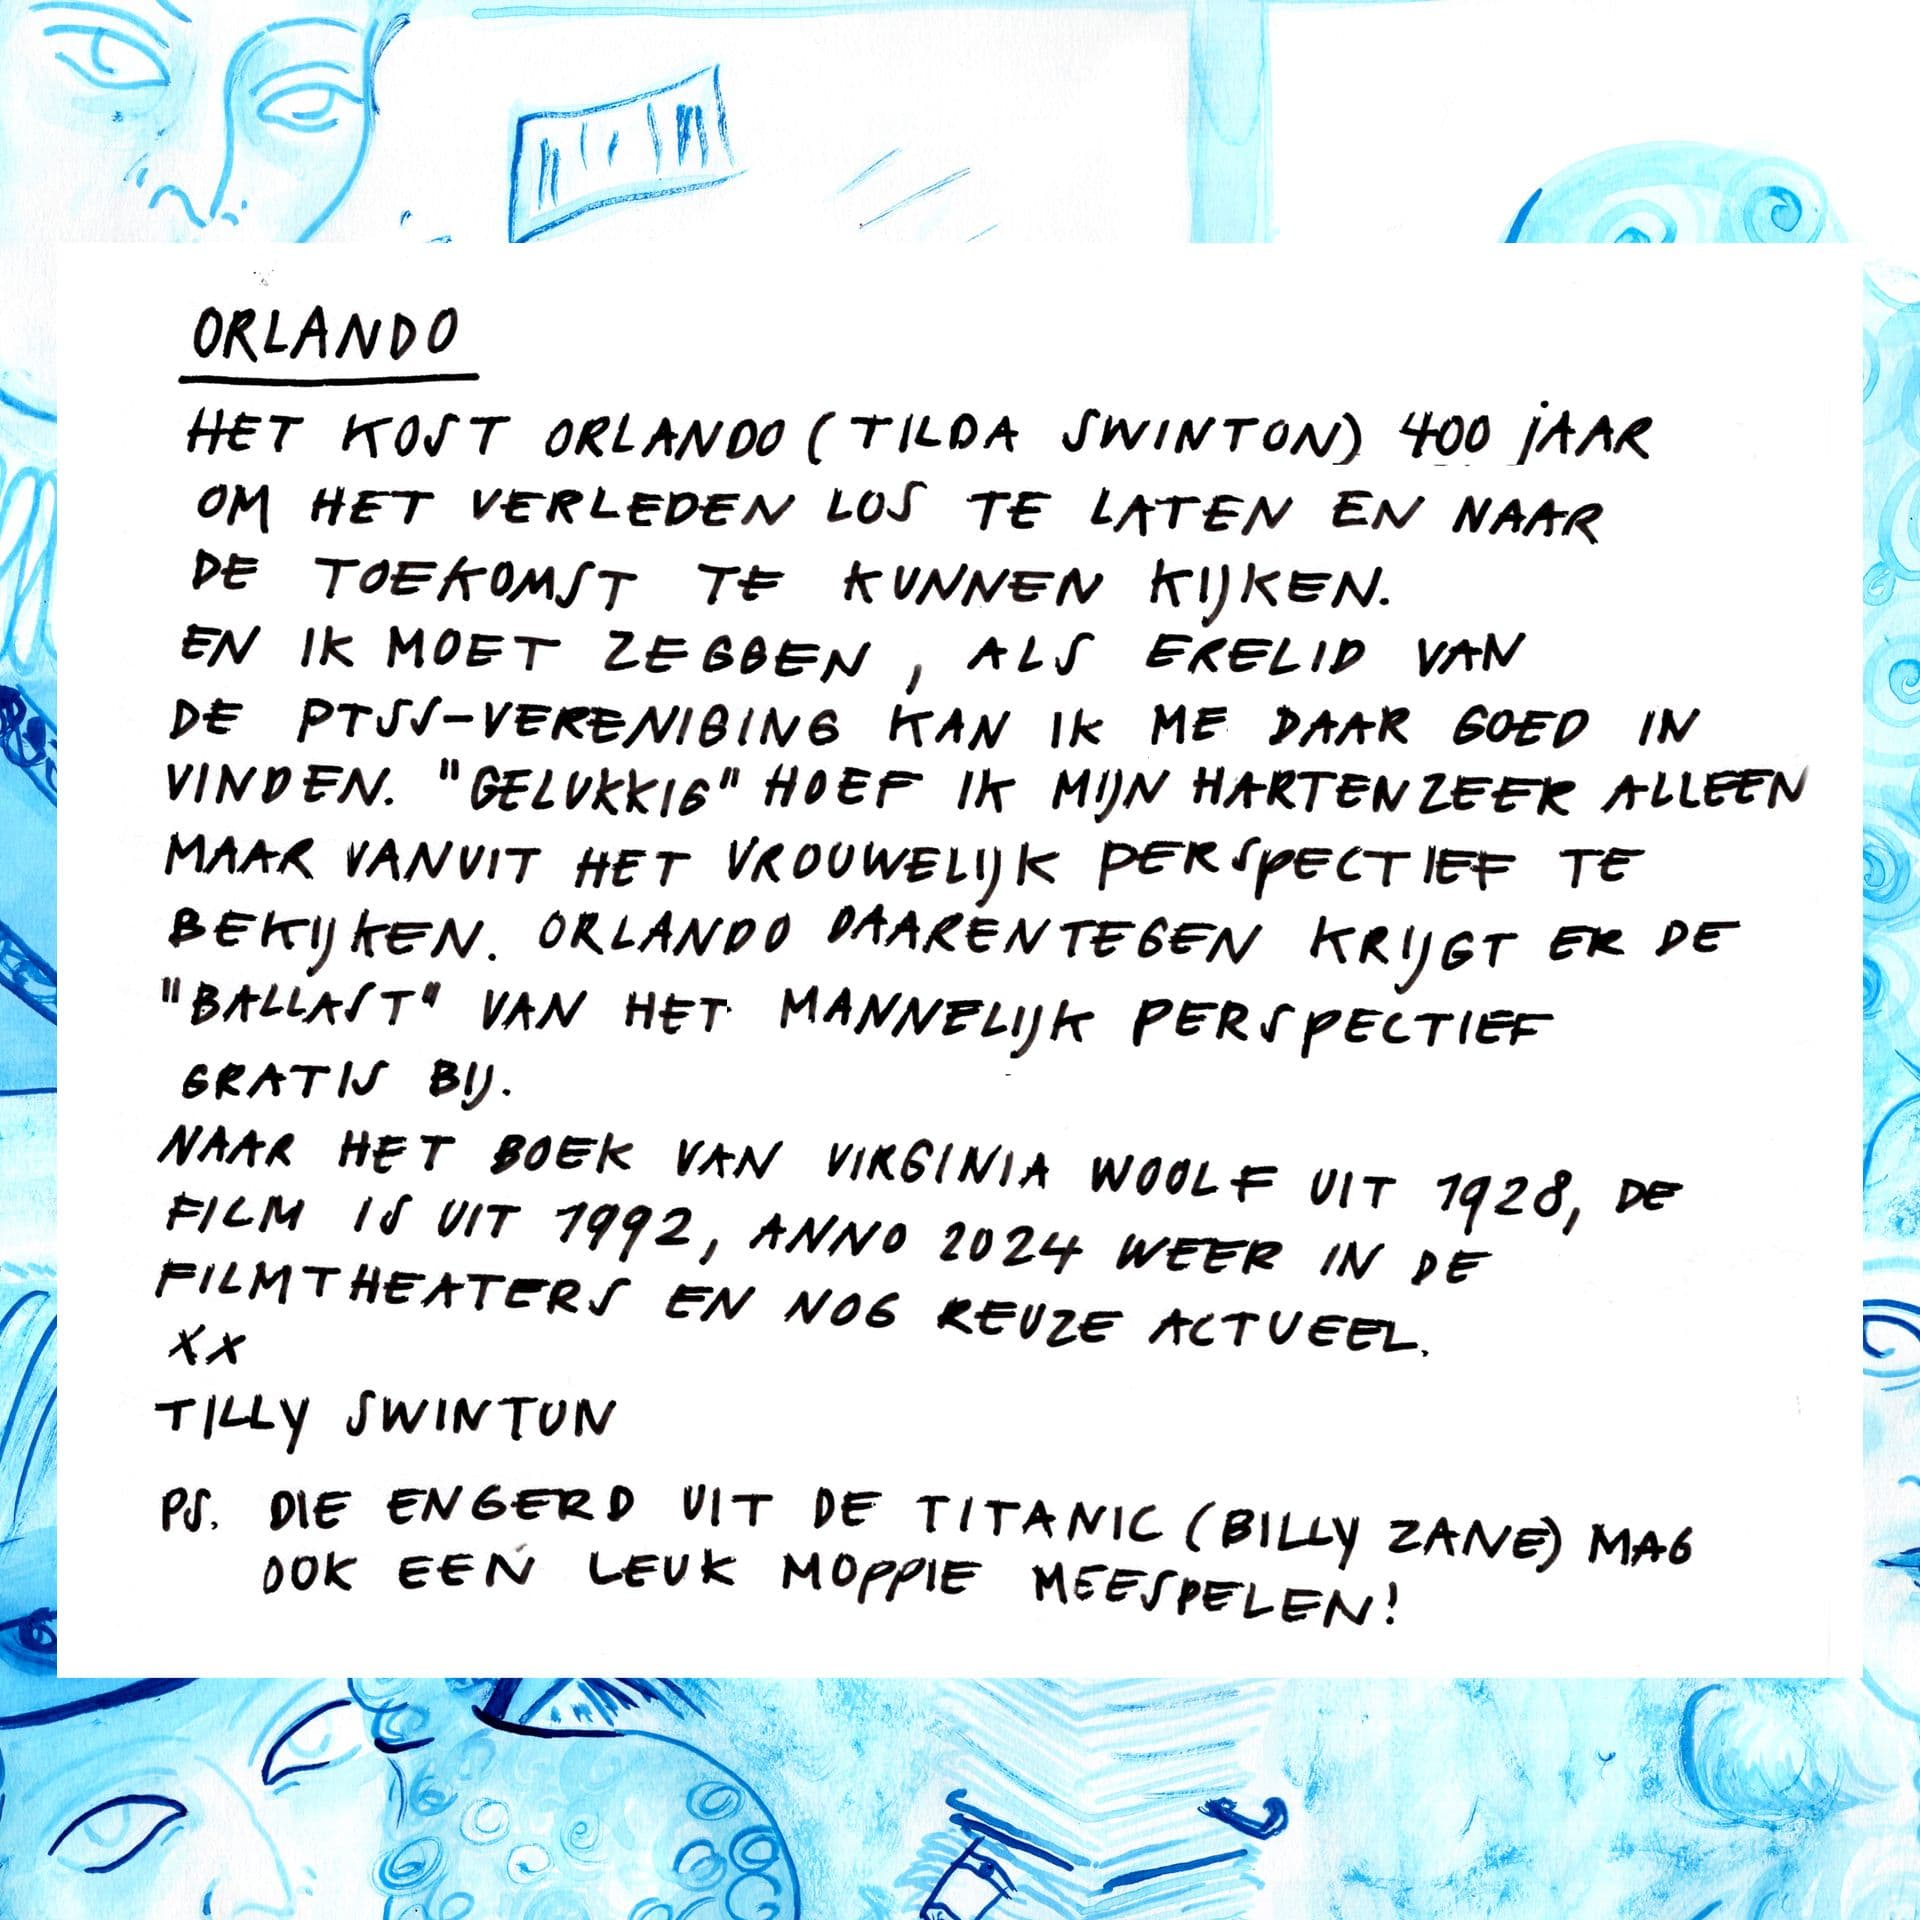 ORLANDO
HET KOST ORLANDO (TILDA SWINTON) 400 JAAR
OM HET VERLEDEN LOS TE LATEN EN NAAR
DE TOEKOMST TE KUNNEN KIJKEN.
EN IK MOET ZEGGEN, ALS ERELID VAN
DE PTSS-VERENIGING KAN IK ME DAAR GOED IN
VINDEN. "GELUKKIG" HOEF IK MIJN HARTENZEER ALLEEN
MAAR VANUIT HET VROUWELIJK PERSPECTIEF TE
BEKIJKEN. ORLANDO DAARENTEGEN KRIJGT ER DE
"BALLAST" VAN HET MANNELIJK PERSPECTIEF
GRATIS BIJ.
NAAR HET BOEK VAN VIRGINIA WOOLF UIT 1928, DE
FILM IS UIT 1992, ANNO 2024 WEER IN DE
FILMTHEATERS EN NOG REUZE ACTUEEL.
XX
TILLY SWINTUN
PS. DIE ENGERD UIT DE TITANIC (BILLY ZANE) MAG
OOK EEN LEUK MOPPIE MEESPELEN!